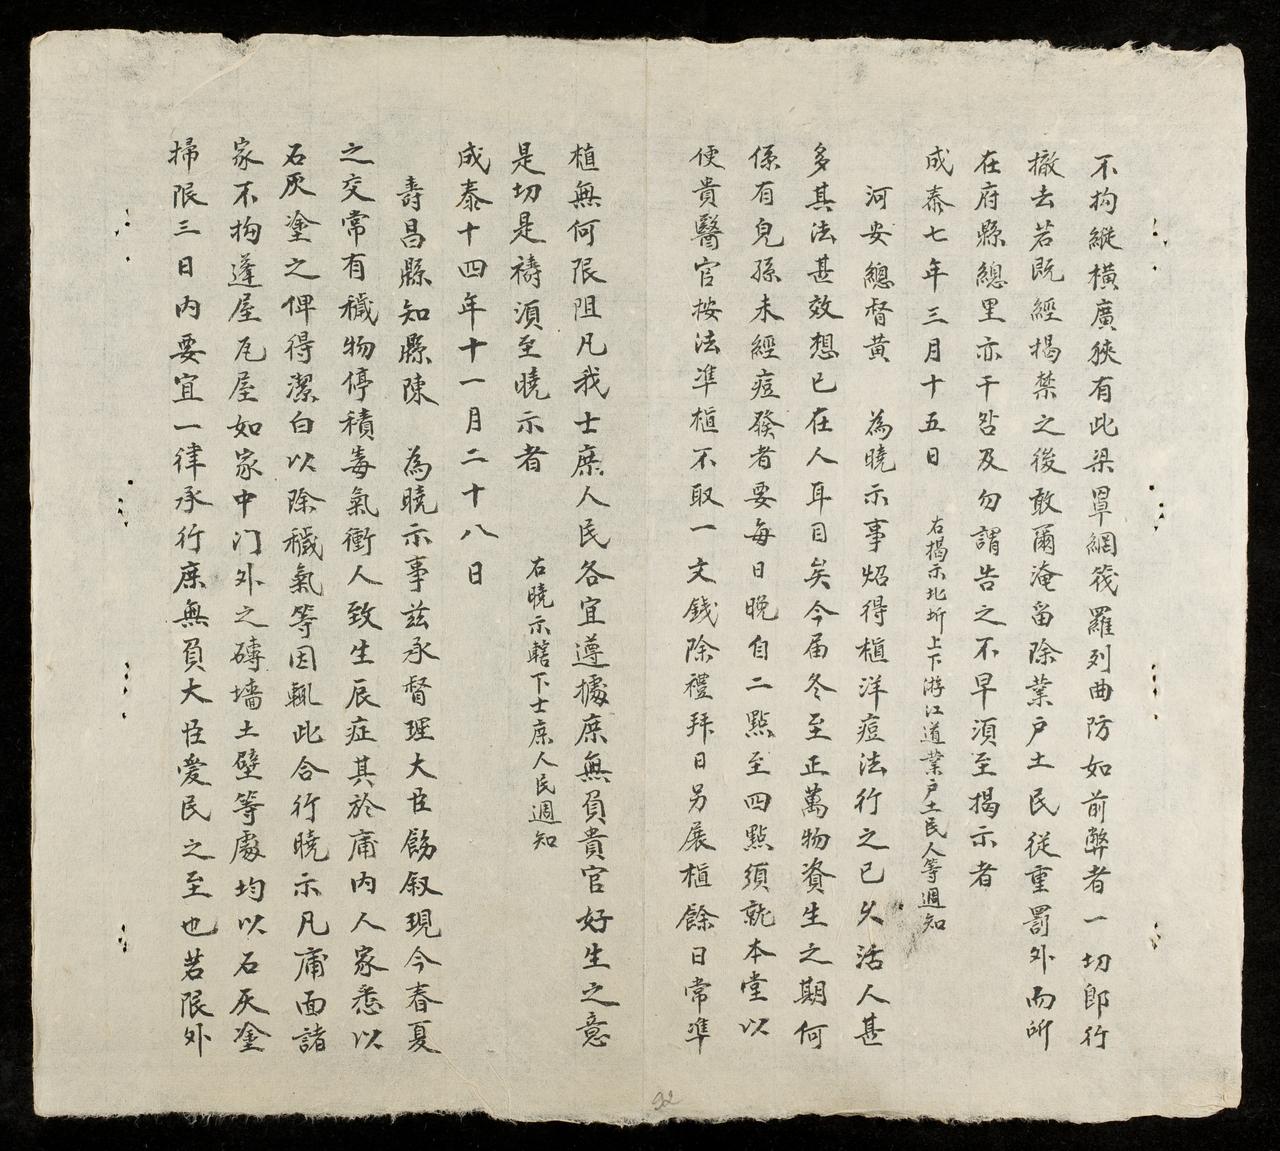 不拘縱橫廣狹有此梁罩網筏羅列曲防如前弊者一切即行
撤去若既經揭禁之後敢爾淹留除業户土民從重罰外而所
在府縣總里亦干咎及勿謂告之不早須至揭示者
成泰七年三月十五日　右揭示北圻上下游江道業户土民人等週知
河安總督黄　為曉示事炤得植洋痘法行之已久活人甚
多其法甚效想已在人耳目矣今届冬至正萬物資生之期何
係有兒孫未經痘發者要每日晚自二點至四點須就本堂以
便貴醫官按法準植不取一文錢除禮拜日另展植餘日常準
植無何限阻凡我士庶人民各宜遵據庶無負貴官好生之意
是切是禱須至曉示者　右曉示轄下士庶人民週知
成泰十四年十一月二十八日
壽昌縣知縣陳　為曉示事茲承督理大臣飭叙現今春夏
之交常有穢物停積毒氣衝人致生辰症其於庯内人家悉以
石灰塗之俾得潔白以除穢氣等因輒此合行曉示凡庯面諸
家不拘蓬屋瓦屋如家中门外之磚墻土壁等處均以石灰塗
掃限三日内要宜一律承行庶無負大臣愛民之至也若限外
92